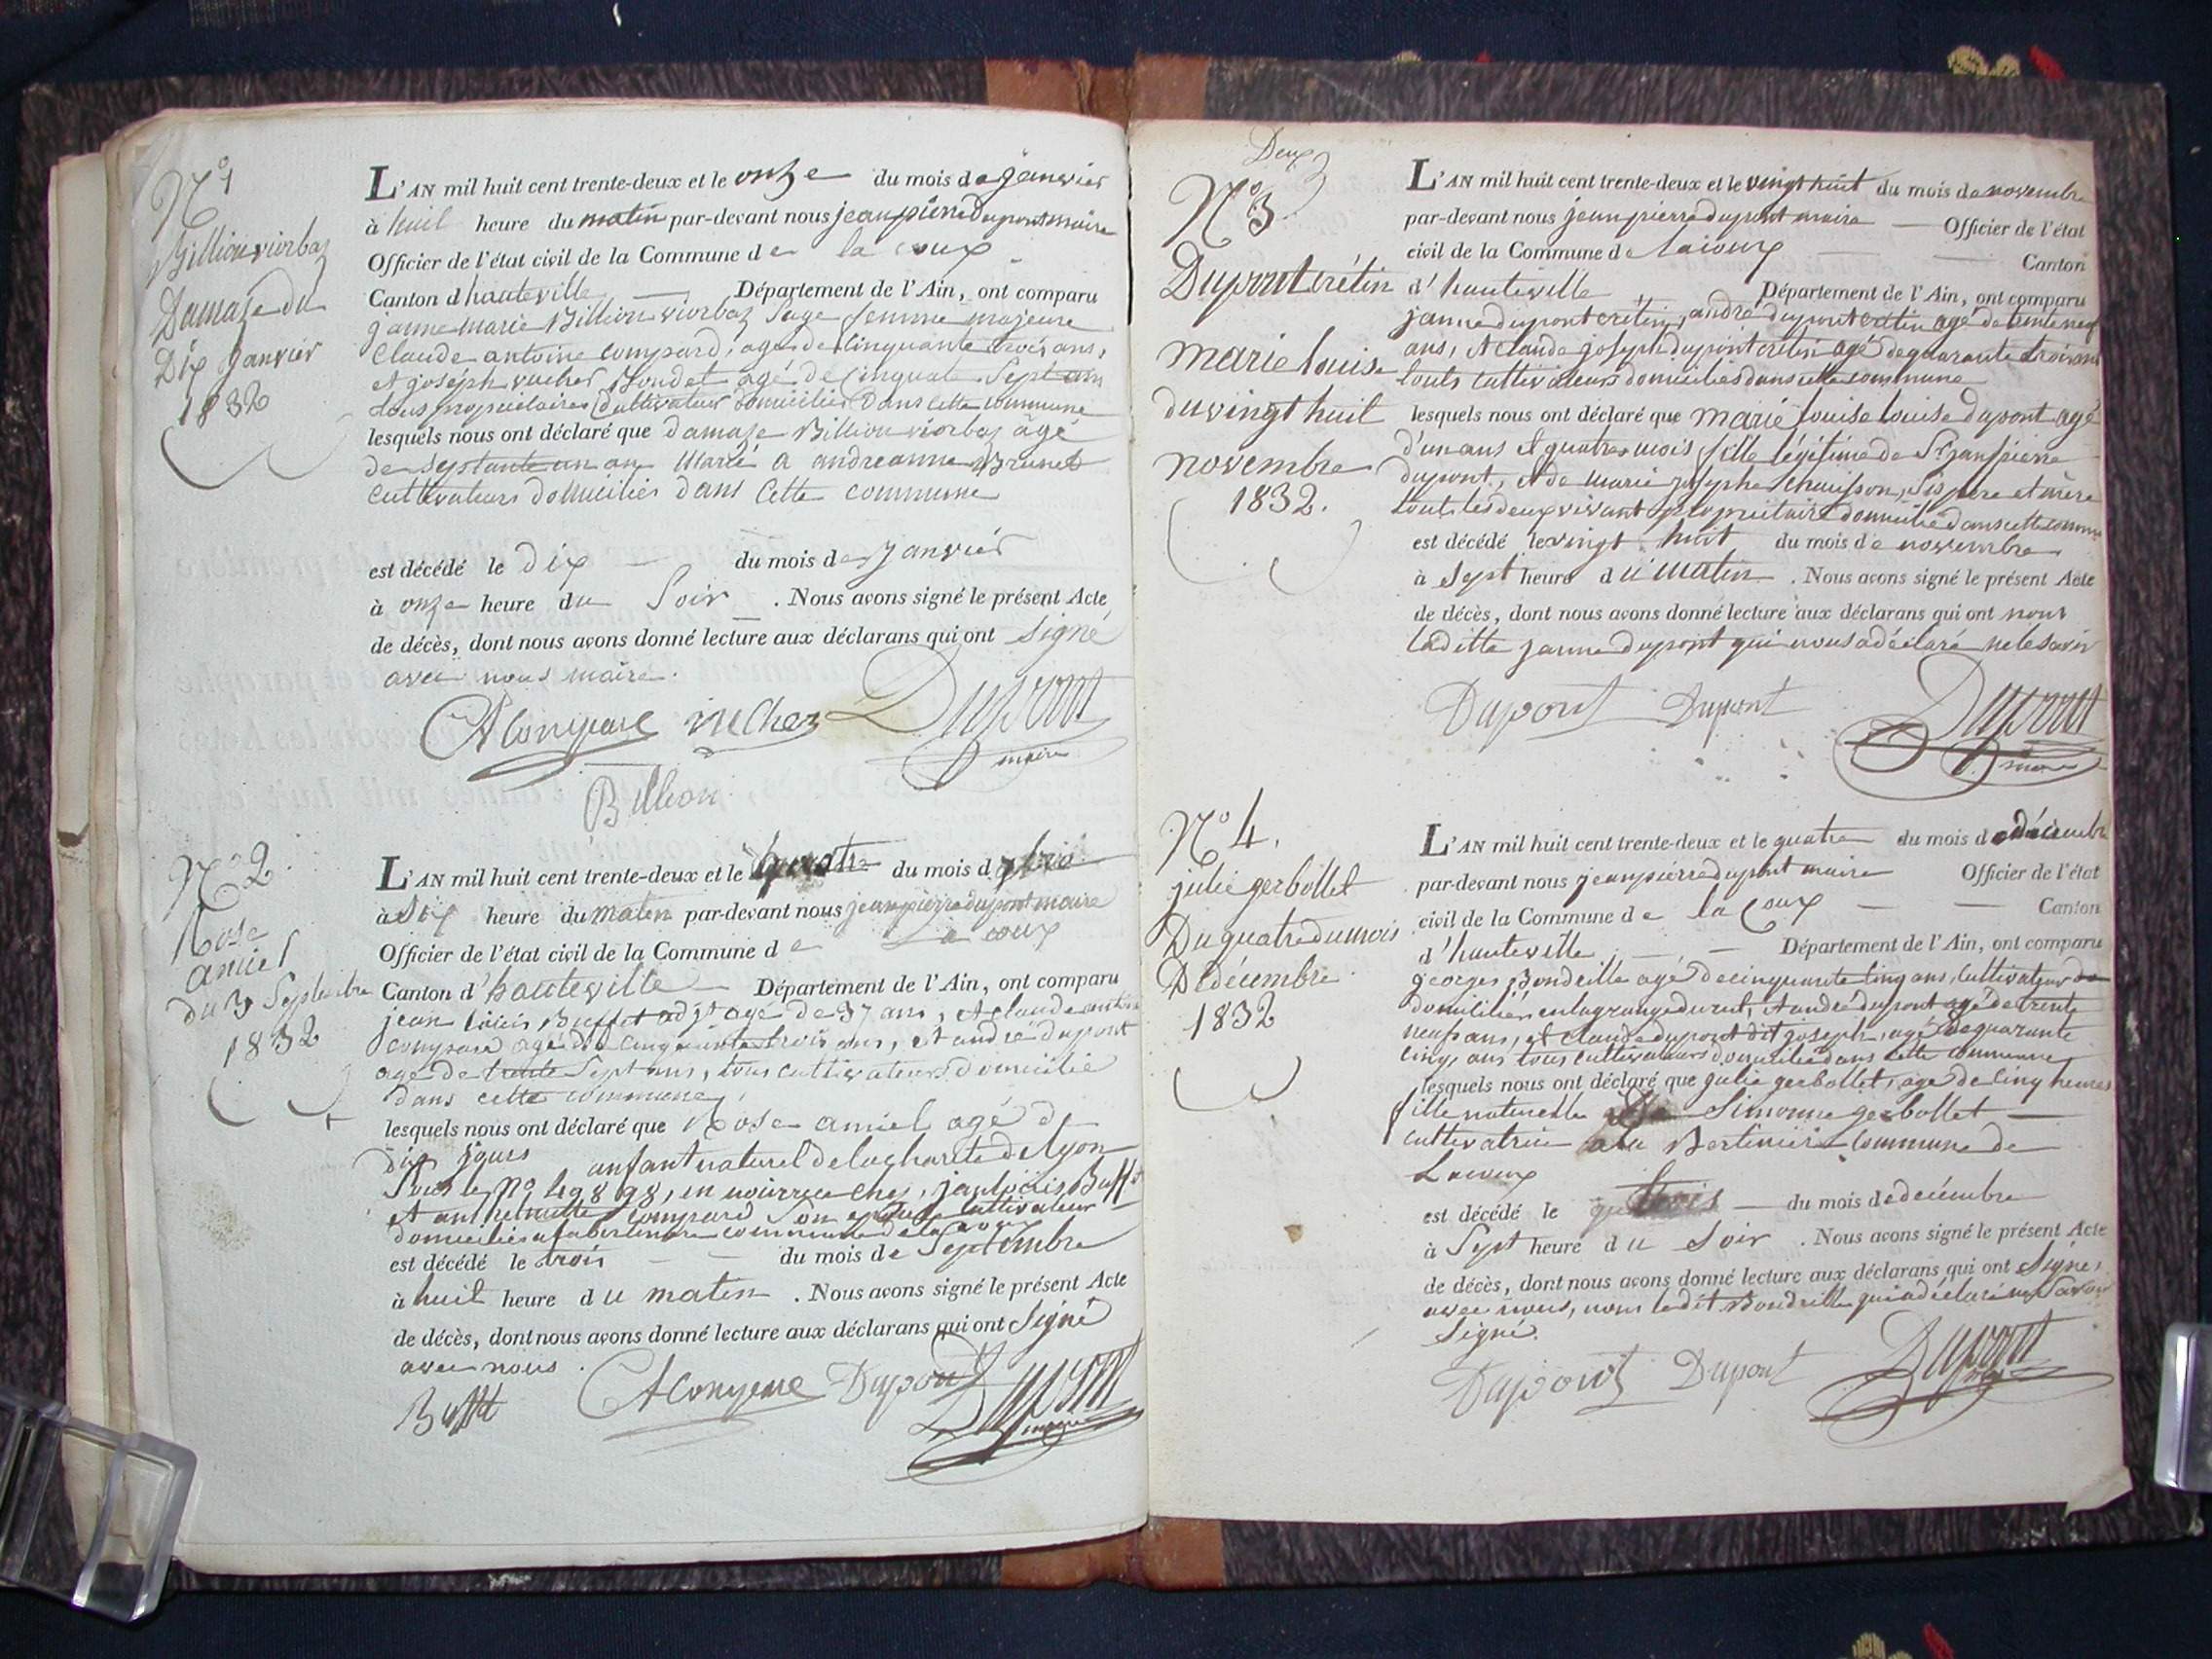 N° 1
Billion viorbaz
Damaze du
Dix Janvier
1832
L'AN mil huit cent trente-deux et le onze du mois de janvier
à huit heure du matin par-devant nous jean pierre dupont maire
Officier de l'état civil de la Commune de la coux
Canton d'hauteville Département de l'Ain, ont comparu
janne marie Billion viorbaz sage femme majeure
Claude antoine compard, agé de cinquante trois ans,
et joseph vucher Bondet agé de cinquate sept ans
tous propriétaires cultivateur domicilier Dans cette commune
lesquels nous ont déclaré que damaze Billion viorbaz agé
de septante un an Marié a andreanne Brunet
cultivateurs domiciliés dans Cette commune
est décédé le dix du mois de janvier
à onze heure du Soir . Nous avons signé le présent Acte
de décès, dont nous avons donné lecture aux déclarans qui ont signé
avec nous maire.
Dupont
maire
Billion
N° 2.
Rose
amiel
du 3 Septembre
1832
L'AN mil huit cent trente-deux et le quatre du mois d 7bre
à Six heure du matin par-devant nous jean pierre dupont maire
Officier de l'état civil de la Commune de La coux
Canton d'hauteville Département de l'Ain, ont comparu
jean louis Buffet adjt agé de 37 ans, et claude antoine
compard agé de cinquante trois ans, et andré dupont
agé de trente Sept ans, tous cultivateurs domicilié
dans cette commune,
lesquels nous ont déclaré que Rose amiel agé de
dix jours anfant naturel de la charité de lyon
Sous le N° 49898, en nourrice chez, jan louis Buffet
et compard Son epouse Cultivateur
domiciliés a commune de la coux
est décédé le trois du mois de Septembre
à huit heure du matin . Nous avons signé le présent Acte
de décès, dont nous avons donné lecture aux déclarans qui ont Signé
avec nous.
Buffet Dupont Dupont
maire
Deux
N° 3
Dupont crétin
marie louise
du vingt huit
novembre
1832.
L'AN mil huit cent trente-deux et le vingt huit du mois de novembre
par-devant nous jean pierre dupont maire Officier de l'état
civil de la Commune de lacoux Canton
d'hauteville Département de l'Ain, ont comparu
janne dupont crétin, andré dupont cretin agé de trente neuf
ans, et Claude joseph dupont crétin agé de quarante trois ans
touts cultivateurs domiciliés dans cette commune
lesquels nous ont déclaré que marie louise louise dupont agé
d'un ans et quatre mois fille légitime de Sr jean pierre
dupont, et de marie josephe ses père et mère
tout les deux vivant propriétaire domicilié dans cette commune
est décédé le vingt huit du mois de novembre
à Sept heure du matin . Nous avons signé le présent Acte
de décès, dont nous avons donné lecture aux déclarans qui ont
laditte janne dupont qui nous a déclaré ne le savoir
Dupont Dupont Dupont
maire
N° 4.
julie gerbollet
Du quatre du mois
De décembre
1832
L'AN mil huit cent trente-deux et le quatre du mois de décembre
par-devant nous jean pierre dupont maire Officier de l'état
civil de la Commune de la Coux Canton
d'hauteville Département de l'Ain, ont comparu
georges Bondrille agé de cinquante cinq ans, Cultivateur
domicilié en la grange et andré dupont agé de trente
neuf ans, et claude dupont dit joseph, agé de quarante
cinq ans tous cultivateurs domicilié dans cette commune
lesquels nous ont déclaré que julie gerbollet, agé de Cinq heures
fille naturelle Simonne gerbollet
cultivatrice a la Bertinière Commune de
Lacoux
est décédé le trois du mois de decémbre
à Sept heure du Soir . Nous avons signé le présent Acte
de décès, dont nous avons donné lecture aux déclarans qui ont Signé,
avec nous, nom ledit Bondrille qui a déclaré ne Savoir
Signé.
Dupont Dupont Dupont